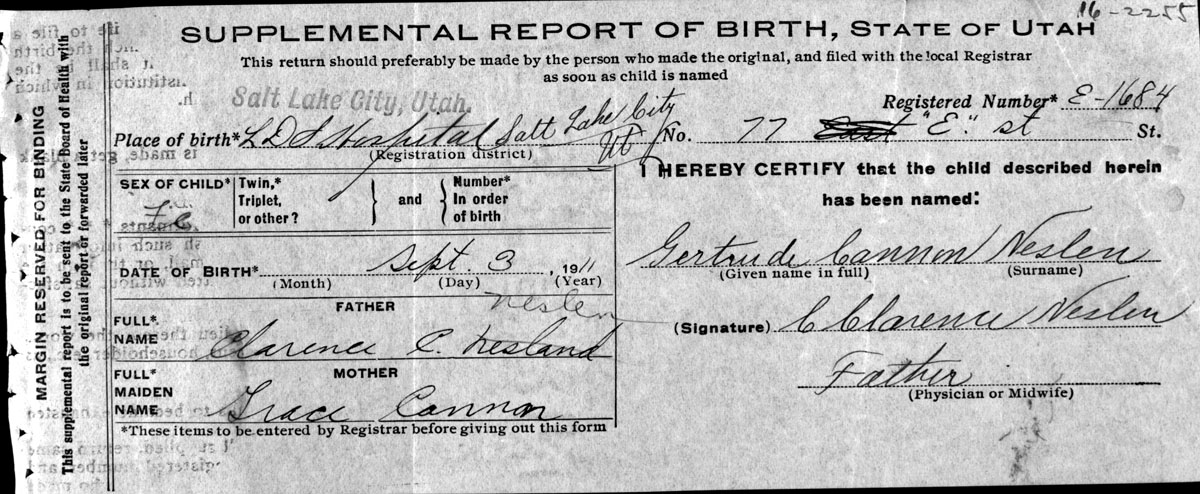 16-2255
SUPPLEMENTAL REPORT OF BIRTH, STATE OF UTAH
This return should preferably be made by the person who made the original, and filed with the local Registrar
as soon as child is named
Salt Lake City, Utah.
Registered Number* E-1684
Place of birth* L D S Hospital Salt Lake City Ut No. 77 East "E." st St.
(Registration district)
SEX OF CHILD* Fe
Twin,* Triplet, or other? } and { Number* In order of birth
DATE OF BIRTH* Sept. 3, 1911
(Month) (Day) (Year)
FATHER
Neslen
FULL* NAME Clarence C. Nesland
MOTHER
FULL* MAIDEN NAME Grace Cannon
*These items to be entered by Registrar before giving out this form
I HEREBY CERTIFY that the child described herein
has been named:
Gertrude Cannon Neslen
(Given name in full) (Surname)
(Signature) C Clarence Neslen
Father
(Physician or Midwife)
MARGIN RESERVED FOR BINDING
This supplemental report is to be sent to the State Board of Health with
the original report or forwarded later